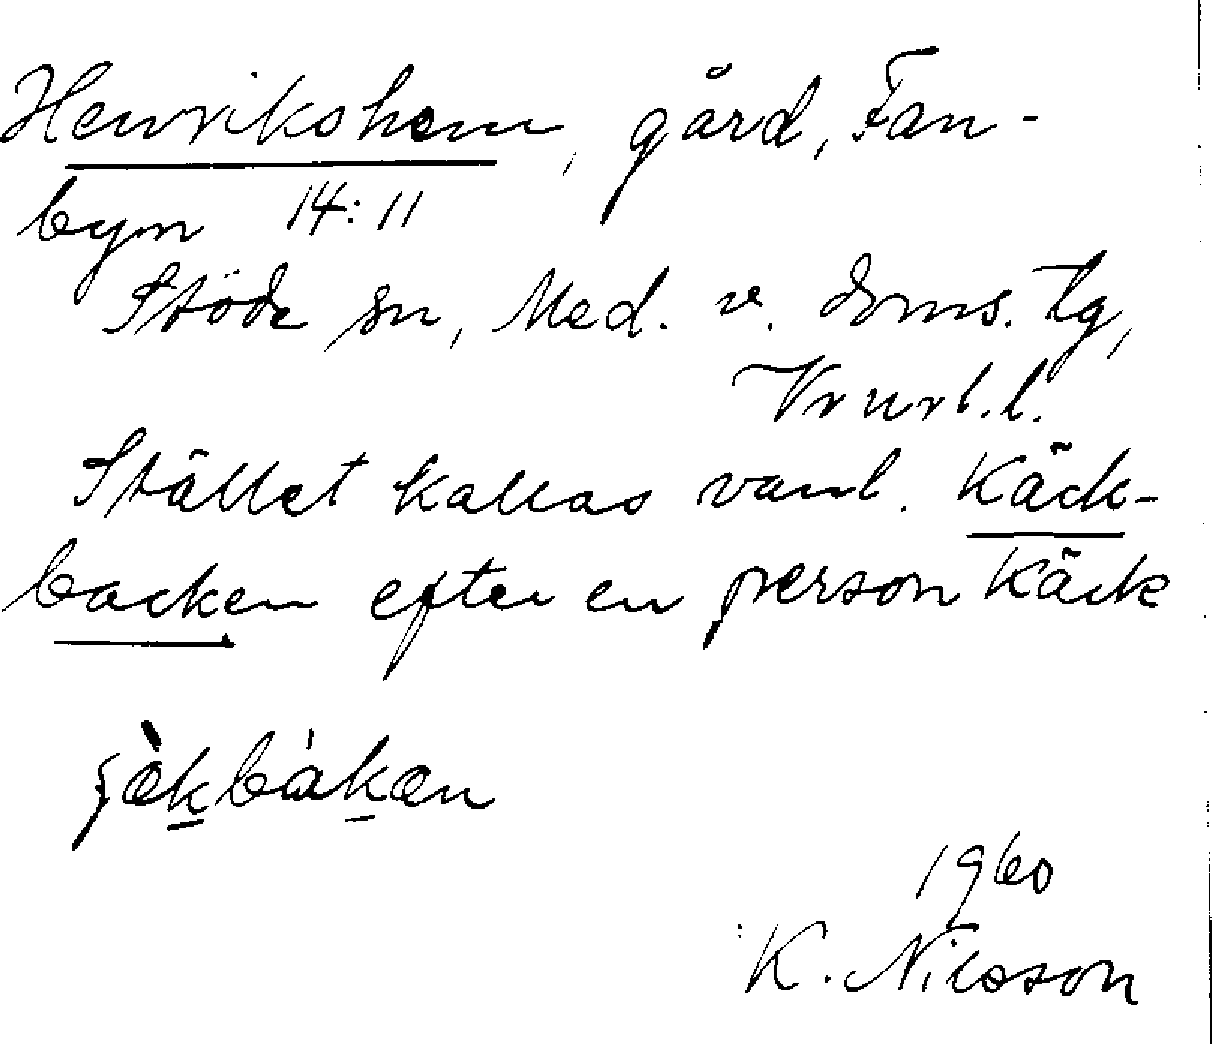 Henrikshem, gård, Fan-
byn 14:11
Stöde sn, Med. v. doms. tg,
Vnrl.l.
Stället kallas vanl. Käck-
backen efter en person Käck
1960
K. Nilsson